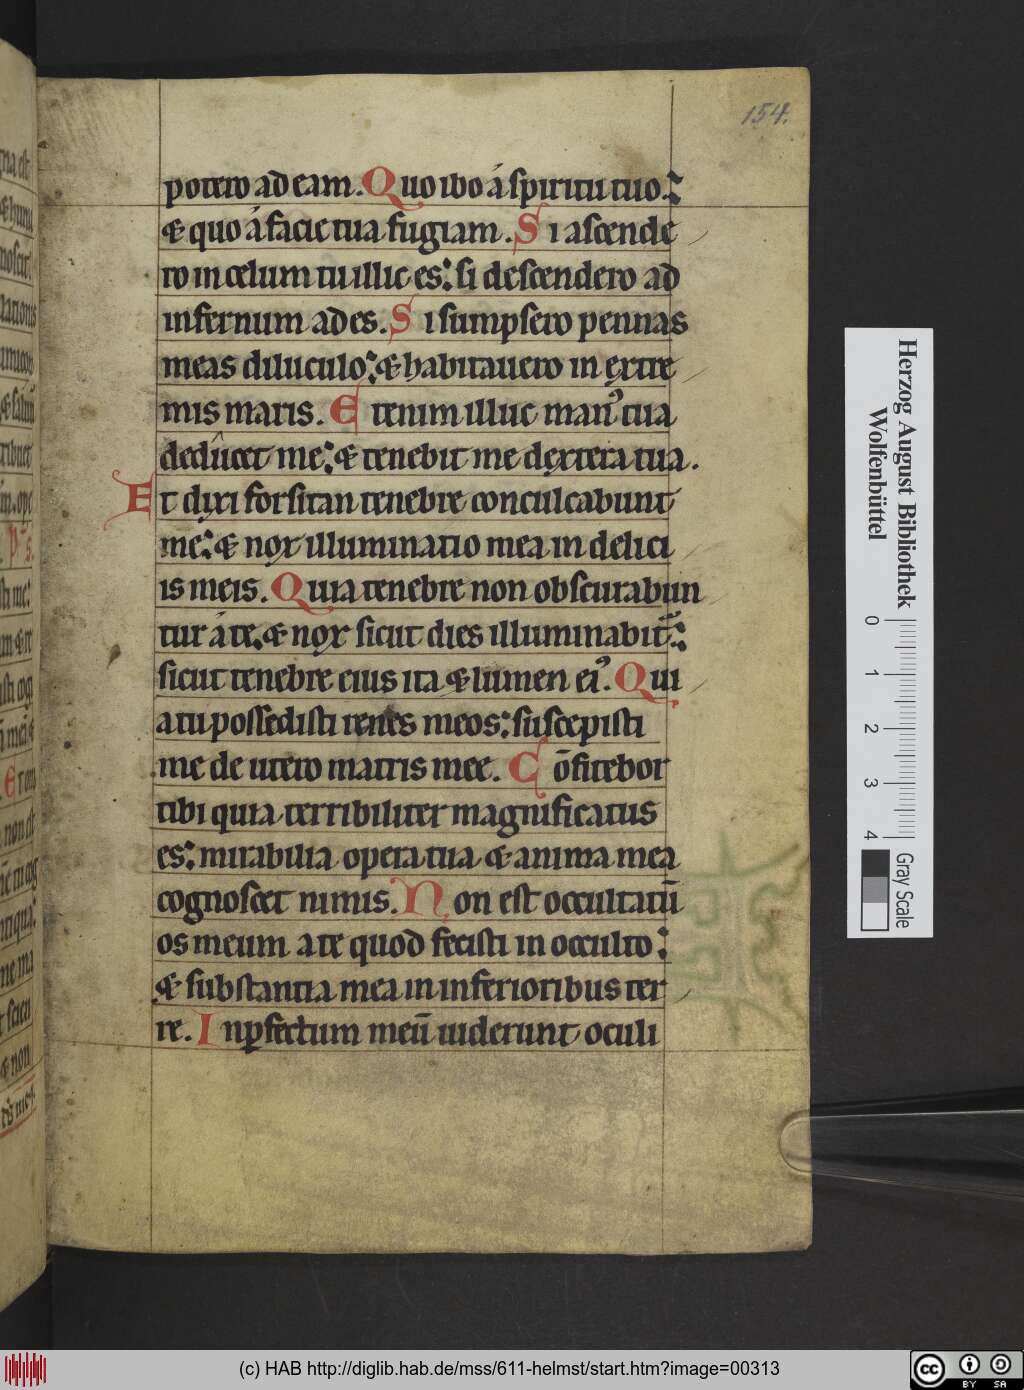 154.
potero ad eam. Quo ibo á spiritu tuo:
& quo á facie tua fugiam. Si ascende
ro in celum tu illic es: si descendero ad
infernum ades. Si sumpsero pennas
meas diluculo: & habitauero in extre
mis maris. Etenim illuc man᾿ tua
deducet me: & tenebit me dextera tua.
Et dixi forsitan tenebre conculcabunt
me: & nox illuminatio mea in delici
is meis. Quia tenebre non obscurabun
tur á te. & nox sicut dies illuminabit̄:
sicut tenebre eius ita & lumen ei᾿. Qui
a tu possedisti renes meos: suscepisti
me de utero matris mee. Cōfitebor
tibi quia terribiliter magnificatus
es: mirabilia opera tua & anima mea
cognoscet nimis. Non est occultatū
os meum a te quod fecisti in occulto:
& substantia mea in inferioribus ter
re. Inꝑfectum meū uiderunt oculi
Herzog August Bibliothek
Wolfenbüttel
0 1 2 3 4
Gray Scale
(c) HAB http://diglib.hab.de/mss/611-helmst/start.htm?image=00313
cc BY SA